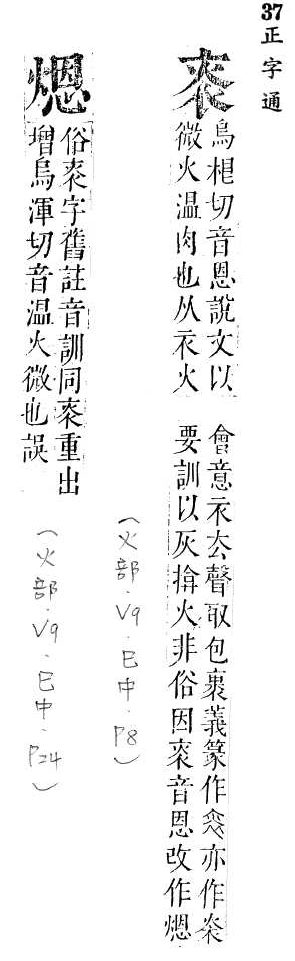 37
正字通
烎
烏根切音恩說文以
微火温肉也从衣火
會意衣厺聲取包裹義篆作亦作
要訓以灰揜火非俗因音恩改作煾
煾
俗字舊註音訓同重出
增烏渾切音温火微也誤
(火部.V9.巳中.P8)
(火部.V9.巳中.P24)